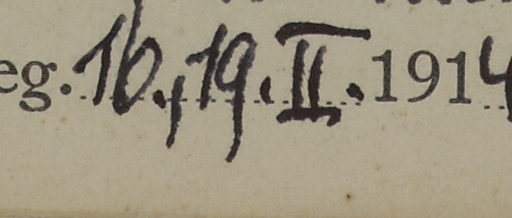 eg. 16., 19. II. 1914